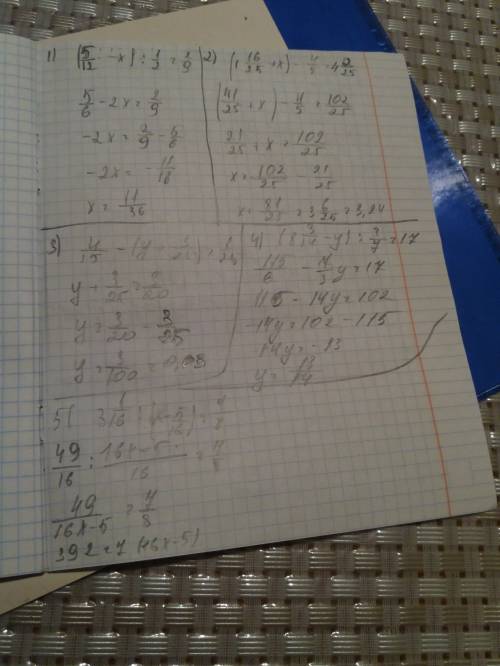 1) (5/12 - x) : 1/2 = 2/9
5/6 - 2x = 2/9
-2x = 2/9 - 5/6
-2x = -11/18
x = 11/36
2) (1 16/25 + x) - 4/5 = 4 2/25
(41/25 + x) - 4/5 = 102/25
21/25 + x = 102/25
x = 102/25 - 21/25
x = 81/25 = 3 6/25 = 3,24
3) 4/15
y + 3/25 = 3/20
y = 3/20 - 3/25
y = 3/100 = 0,03
4) - y) : 3/7 = 17
115/6 - 7/3 y = 17
115 - 14y = 102
-14y = 102 - 115
14y = -13
y = 13/14
5) 3 1/16
49/16 : 16x-5/16 = 7/8
49/16x-5 = 7/8
392 = 7 (16x-5)